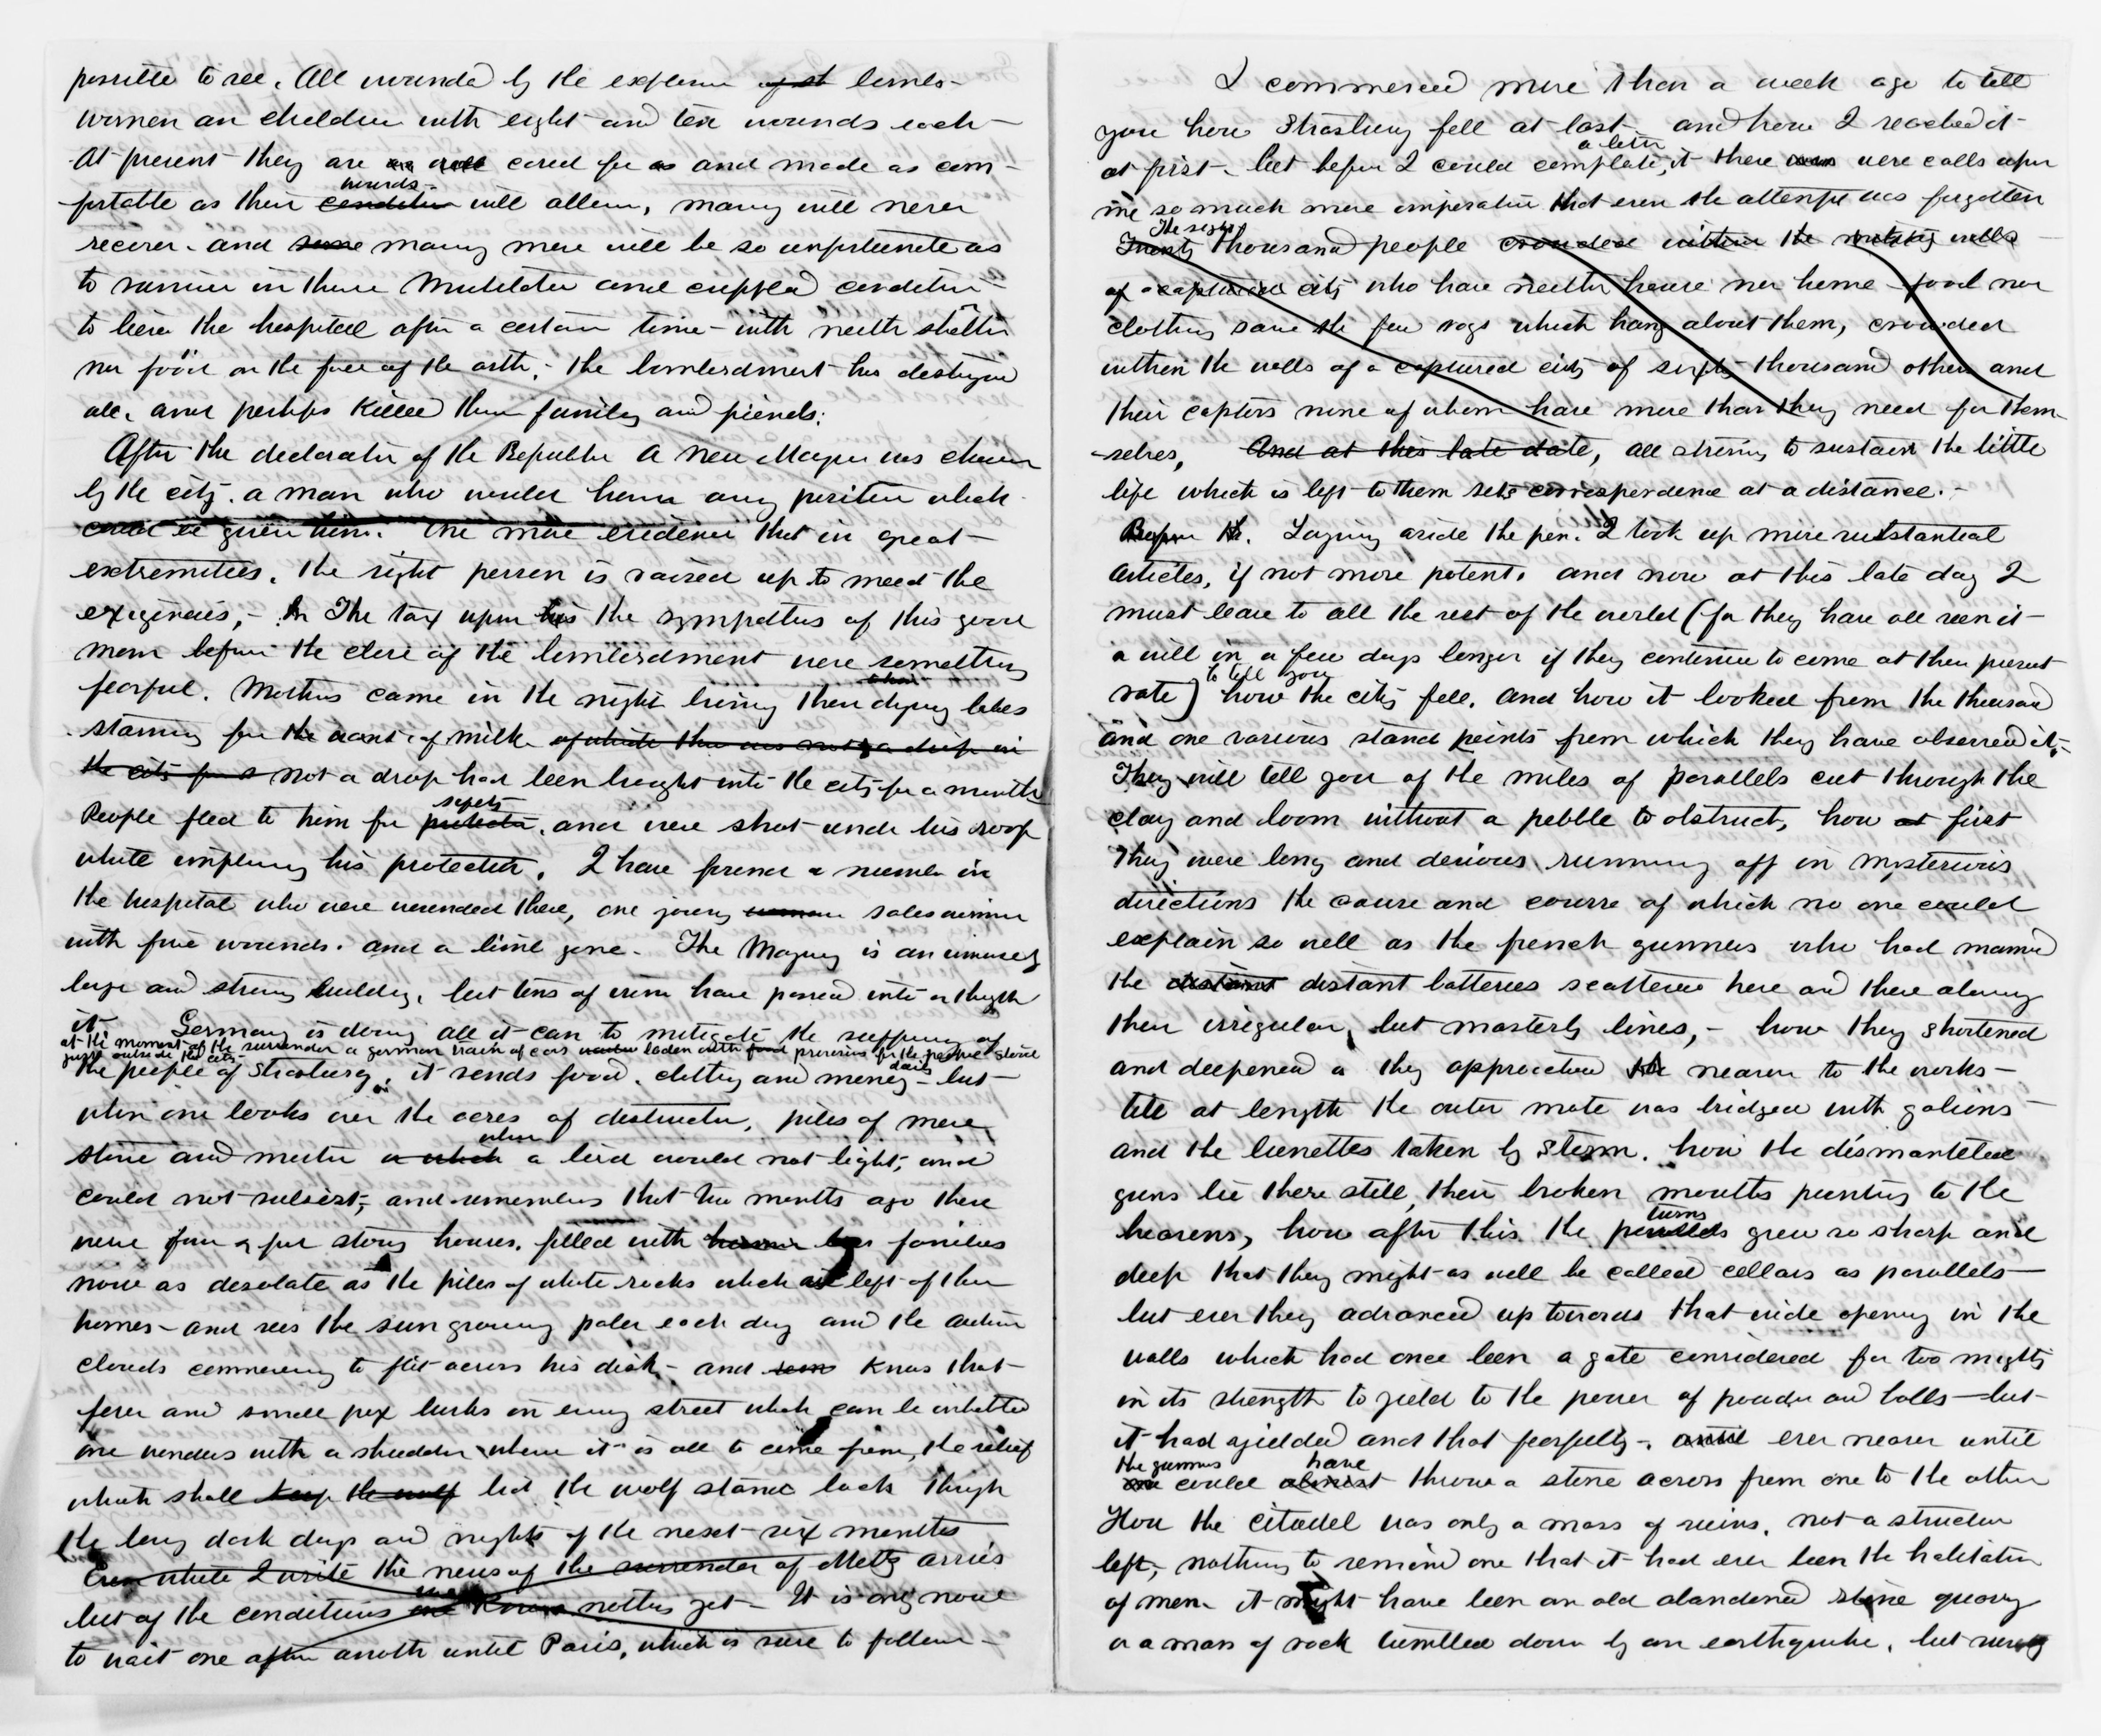 possible to see. All wounded by the explosion of sh bombs -
women an children with eight and ten wounds each -
At present they are cared for as and made as com -
fortable as their condition wounds - will allow, many will never
recover - and some many more will be so unfortunate as
to survive in there mutilated and crippled condition -
to leave the hospital after a certain time - with neith shelter
nor food on the face of the earth, - the bombardment has destroyed
all, and perhaps killed their family and friends.
After the declaration of the Republic a new Mayor was chosen
by the city. a man who would honor any position which
could be given him. One more evidence that in great -
extremities, the right person is raised up to meet the
exigencies, - The tax upon his the sympathies of this good
man before the close of the bombardment were something
fearful. Mothers came in the night bring their dying babes
starving for the want of milk of which there was not a drop in
the city for a not a drop had been brought into the city for a month
People fled to him for protection safety, and were shot under his roof
while imploring his protection. I have found a number in
the hospital who were wounded there, one young woman saleswoman
with five wounds. and a limb gone - The Mayory is an immensely
large and strong building, but tons of iron have passed into or through
it. Germany is doing all it can to mitigate the suffering of
at the moment of the surrender a german train of cars loden with food provisions for the people stood
just outside the city -
the people of Strasburg. it sends food, clothing and money daily - but -
when one looks over the acres of destruction, piles of mere
stone and morter a which where a bird would not light, and
could not subsist, and remembers that two months ago there
were four & five story houses, filled with human families
now as desolate as the piles of white rocks which are left of their
homes - and sees the sun growing paler each day and the autumn
clouds commencing to flit across his disk - and knows that -
fever and small pox lurks in every street which can be inhabited
one wonders with a shudder where it is all to come from, the relief
which shall keep the wolf bid the wolf stand back through
the long dark days and nights of the next six months
Even while I write the news of the surrender of Metz arrives
but of the conditions we know nothing yet - It is only now
to wait one after anoth until Paris, which is sure to follow -
I commenced more than a week ago to tell
you how Strasburg fell at last - and how I reached it -
at first - but before I could complete a letter, it there were calls upon
me so much more imperative that even the attempt was forgotten
Twenty The sight thousand people crowded within the walls
of a captured city who have neither house nor home - food nor
clothing save the few rags which hang about them, crowded
within the walls of a captured city of sixty thousand others and
their captors none of whom have more than they need for them -
- selves, And at this late date, all striving to sustain the little
life which is left to them sets correspondence at a distance. -
Before th. Laying aside the pen. I took up more substantial
articles, if not more potent. and now at this late day I
must leave to all the rest of the world (for they have all seen it -
a will in a few days longer if they continue to come at their present
rate) to tell you how the city fell. and how it looked from the thousand
and one various stand points from which they have observed it, -
They will tell you of the miles of parallels cut through the
clay and loom without a pebble to obstruct, how at first
they were long and devious running off in mysterious
directions the cause and course of which no one could
explain so well as the french gunners who had manned
the distant distant batteries scattered here and there along
their irregular, but masterly lines, - how they shortened
and deepened as they approached nearer to the works -
till at length the outer mote was bridged with gabions -
and the lunettes taken by storm. how the dismantled
guns lie there still, their broken mouths pointing to the
heavens, how after this the parallels turns grew so sharp and
deep that they might as well be called cellars as parallels -
but ever they advanced up towards that wide opening in the
walls which had once been a gate considered far too mighty
in its strength to yield to the power of powder and balls - but -
it had yielded and that fearfully - until ever nearer until
the gunners could almost have throw a stone across from one to the other
How the citadel was only a mass of ruins, not a structure
left, nothing to remind one that it had ever been the habitation
of men. it might have been an old abandoned stone quarry
or a mass of rock tumbled down by an earthquake, but